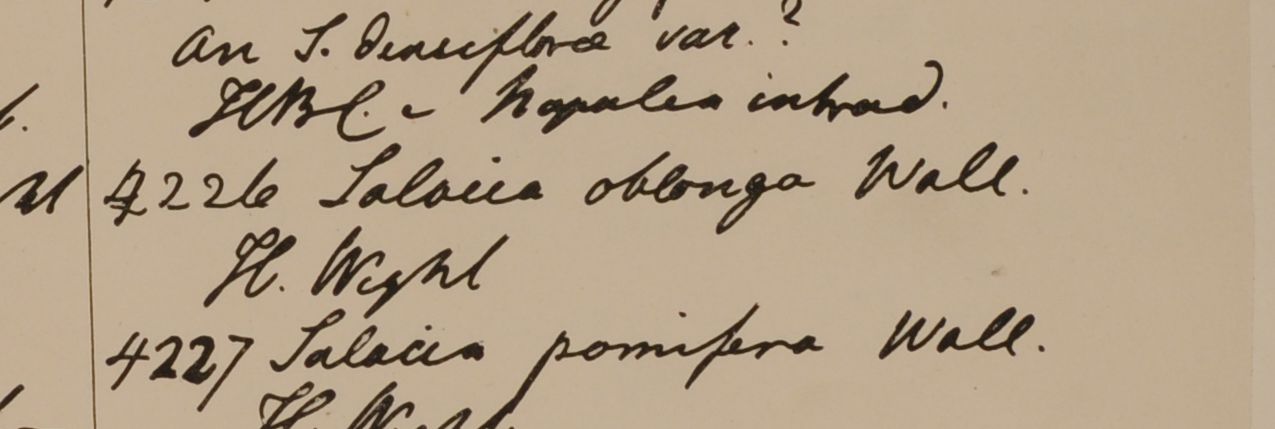 An S. densiflorae var.?
HBC. e Napalea introd.
4226 Salacia oblonga Wall.
H. Wight
4227 Salacia pomifera Wall.
H. Wight